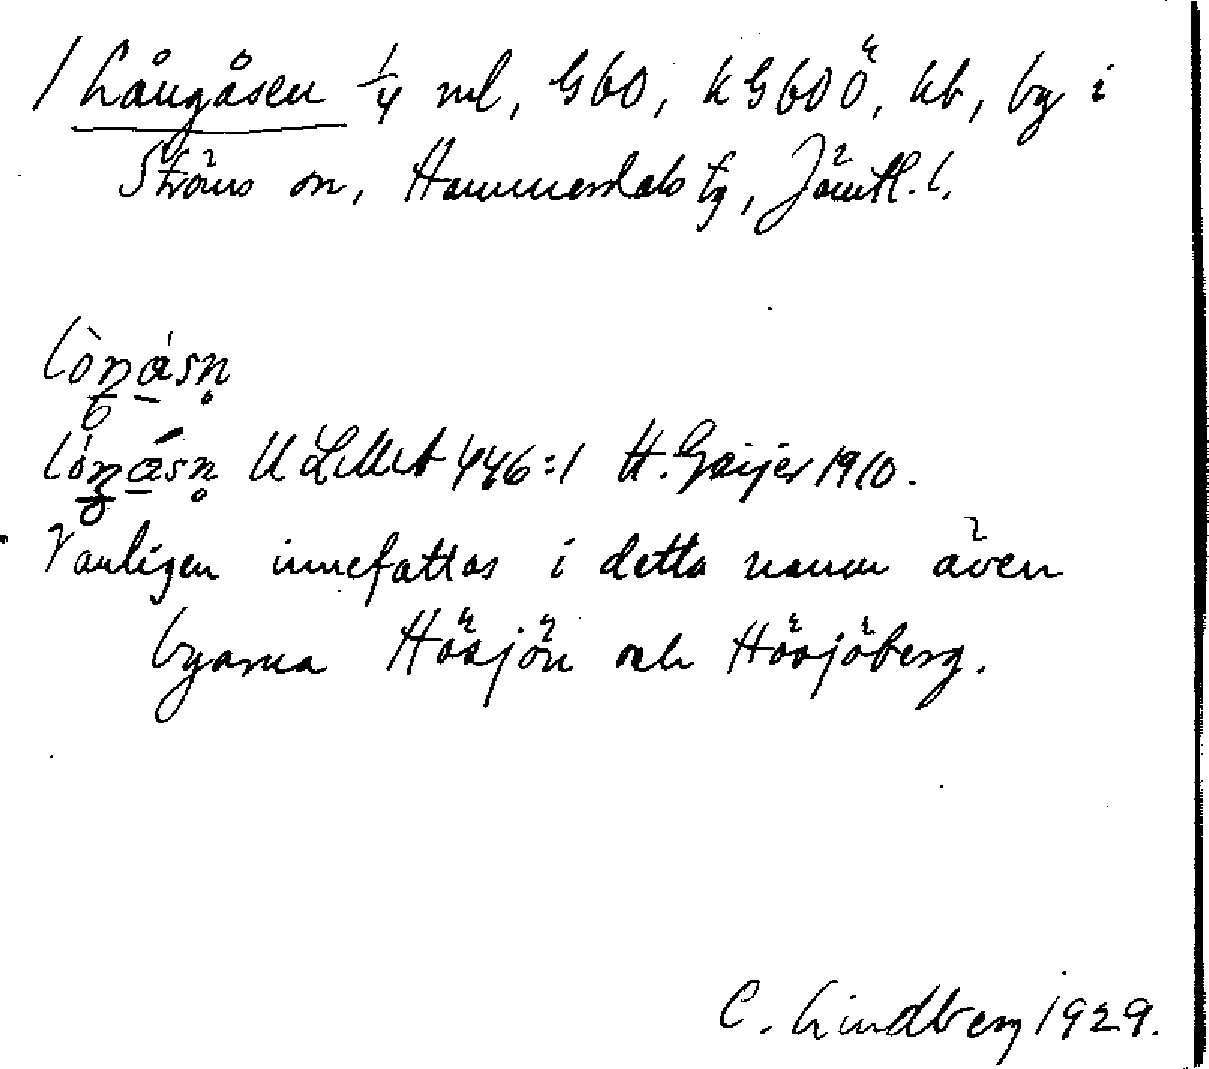 / Långåsen 1/4 ml, G60, kG60Ö, kb, by i
Ströms sn, Hammerdals tg, Jämtl. l.
lòŋåsn̥
lóŋåsn̥ ULMA 446:1 H. Geijer 1910.
Vanligen innefattas i detta namn även
byarna Hösjön och Hösjöberg.
C. Lindberg 1929.